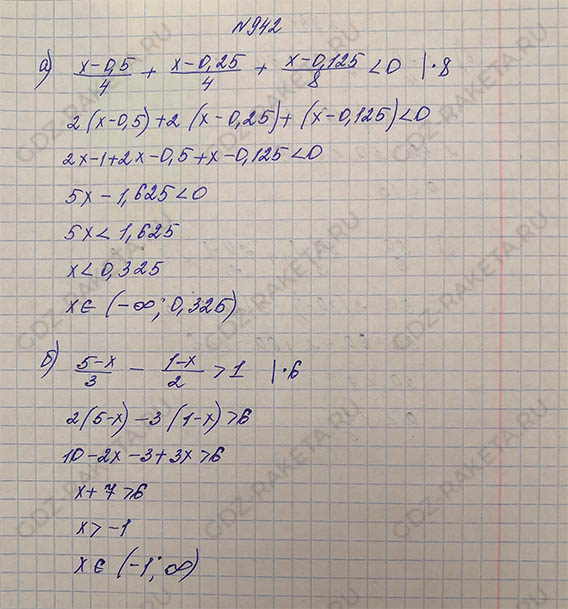 №942
а) (x-0,5)/4 + (x-0,25)/4 + (x-0,125)/8 <0 |·8
2(x-0,5)+2(x-0,25)+(x-0,125)<0
2x-1+2x-0,5+x-0,125<0
5x-1,625<0
5x<1,625
x<0,325
x∈(-∞; 0,325)
б) (5-x)/3 - (1-x)/2 >1 |·6
2(5-x)-3(1-x)>6
10-2x-3+3x>6
x+7>6
x>-1
x∈(-1; ∞)
GDZ-RAKETA.RU